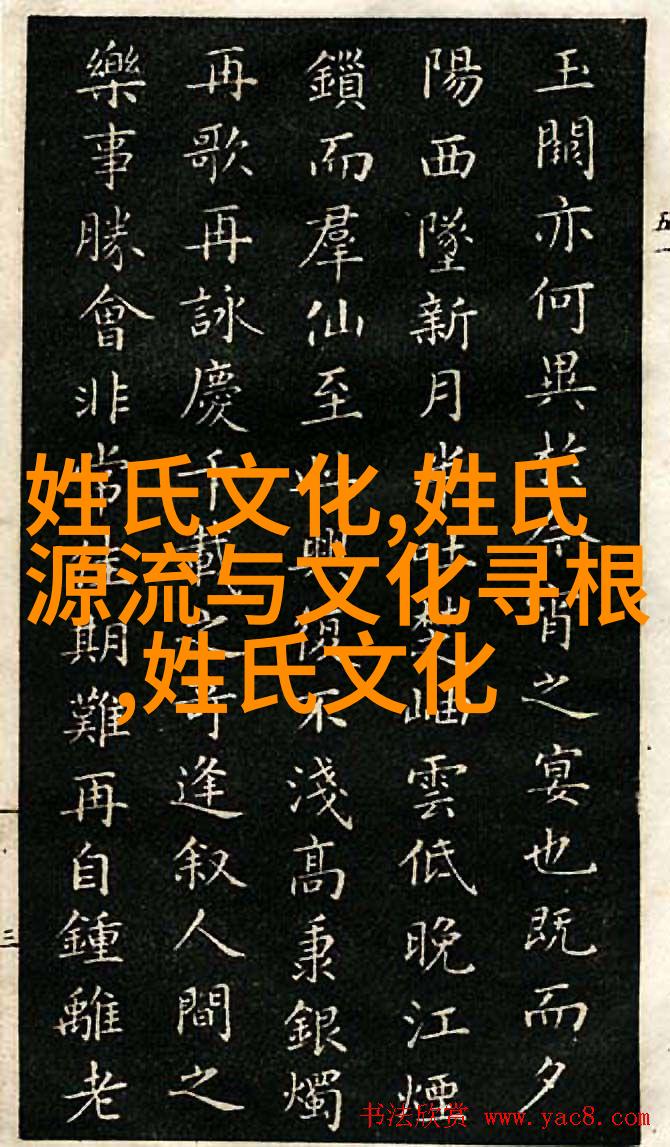 玉闕亦何異於今宵之宴也既而夕
陽西墜新月半吐楚岫雲低晚江煙
鎖而羣仙至止興復不淺高秉銀燭
再歌再詠慶千載之奇逢叙人間之
樂事勝會非常佳期難再自鍾離老
姓氏文化,姓氏
源流与文化寻根
,姓氏文化
五
三
书法欣赏 www.yac8.com